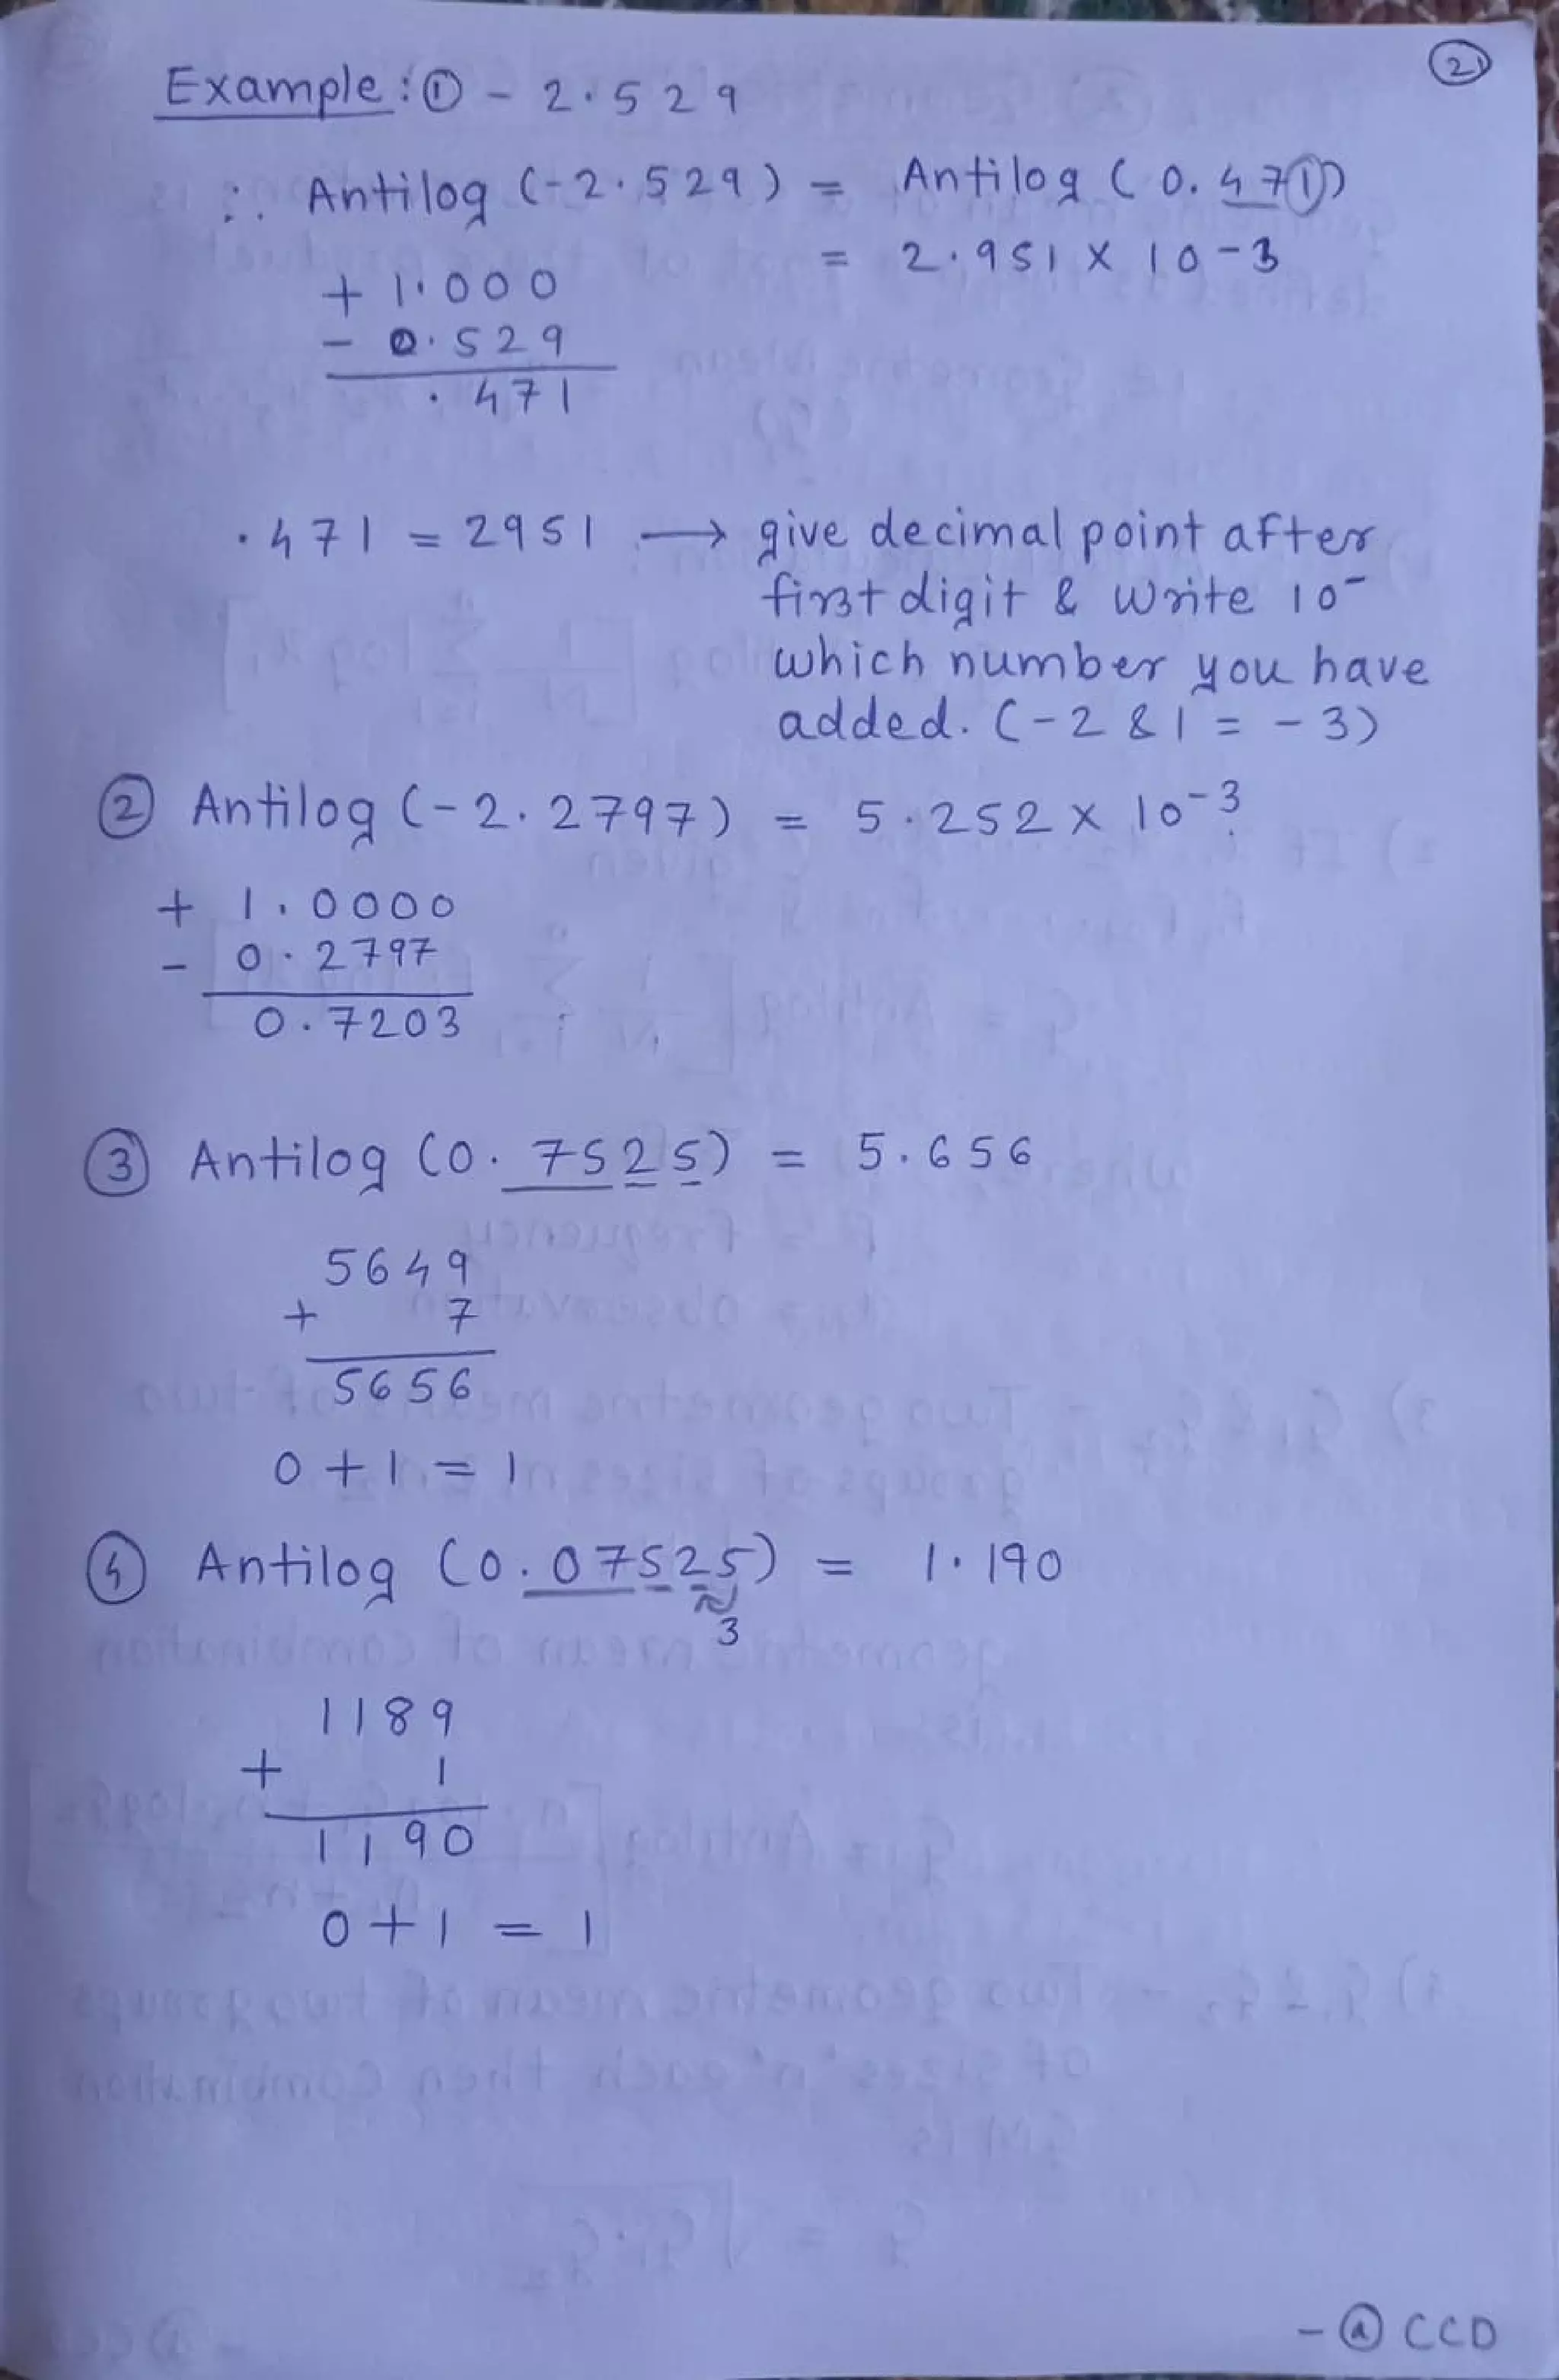 ②
Example : ① - 2.529
∴ Antilog (-2.529) = Antilog (0.471)
= 2.951 x 10-3
+ 1.000
- 0.529
.471
.471 = 2951 → give decimal point after
first digit & write 10-
which number you have
added. (-2 & 1 = -3)
② Antilog (-2.2797) = 5.252 x 10⁻³
+ 1.0000
- 0.2797
0.7203
③ Antilog (0.7525) = 5.656
5649
+ 7
5656
0 + 1 = 1
④ Antilog (0.07525) = 1.190
3
1189
+ 1
1190
0 + 1 = 1
- @ CCD